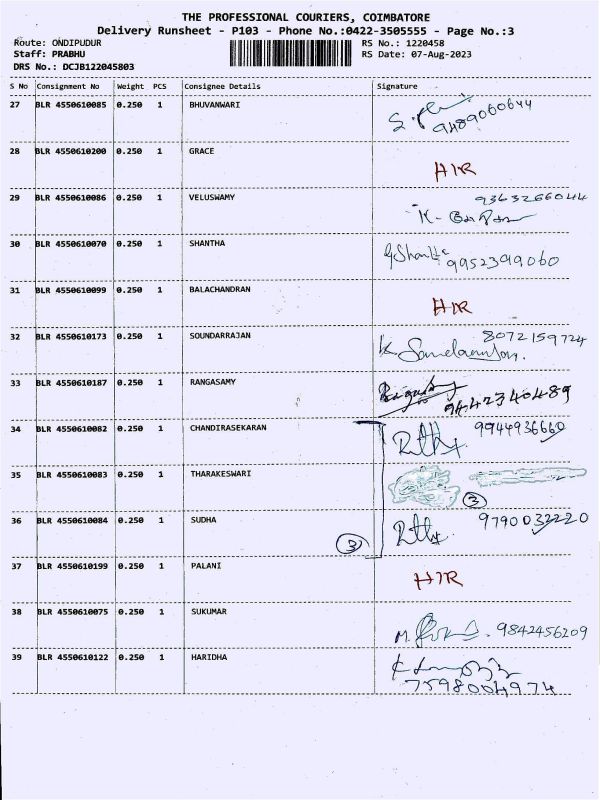 THE PROFESSIONAL COURIERS, COIMBATORE
Delivery Runsheet - P103 - Phone No.:0422-3505555 - Page No.:3
Route: ONDIPUDUR RS No.: 1220458
Staff: PRABHU RS Date: 07-Aug-2023
DRS No.: DCJB122045803
S No Consignment No Weight PCS Consignee Details Signature
27 BLR 4550610085 0.250 1 BHUVANWARI
9489060644
28 BLR 4550610200 0.250 1 GRACE HIR
29 BLR 4550610086 0.250 1 VELUSWAMY 9363266044
K-
30 BLR 4550610070 0.250 1 SHANTHA 9952399060
31 BLR 4550610099 0.250 1 BALACHANDRAN HIR
32 BLR 4550610173 0.250 1 SOUNDARRAJAN 8072159724
K
33 BLR 4550610187 0.250 1 RANGASAMY 9442340489
34 BLR 4550610082 0.250 1 CHANDIRASEKARAN 9944936660
35 BLR 4550610083 0.250 1 THARAKESWARI 3
36 BLR 4550610084 0.250 1 SUDHA 9790032220
3
37 BLR 4550610199 0.250 1 PALANI HIR
38 BLR 4550610075 0.250 1 SUKUMAR M. 9842456209
39 BLR 4550610122 0.250 1 HARIDHA
7598004974